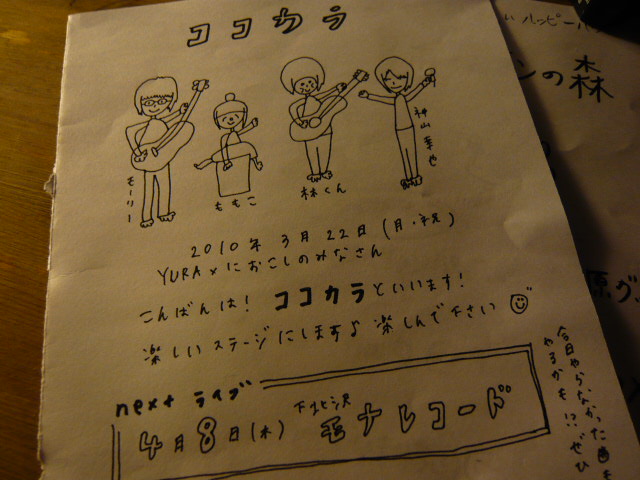 ココカラ
モーリー
ももこ
林くん
神山幸也
2010年3月22日(月・祝)
YURAxにおこしのみなさん
こんばんは! ココカラといいます!
楽しいステージにします♪ 楽しんで下さい
next ライブ
4月8日(木) 下北沢 モナレコード
今日やらなかった曲も
やるかも!? ぜひ
ハッピー
の森
原